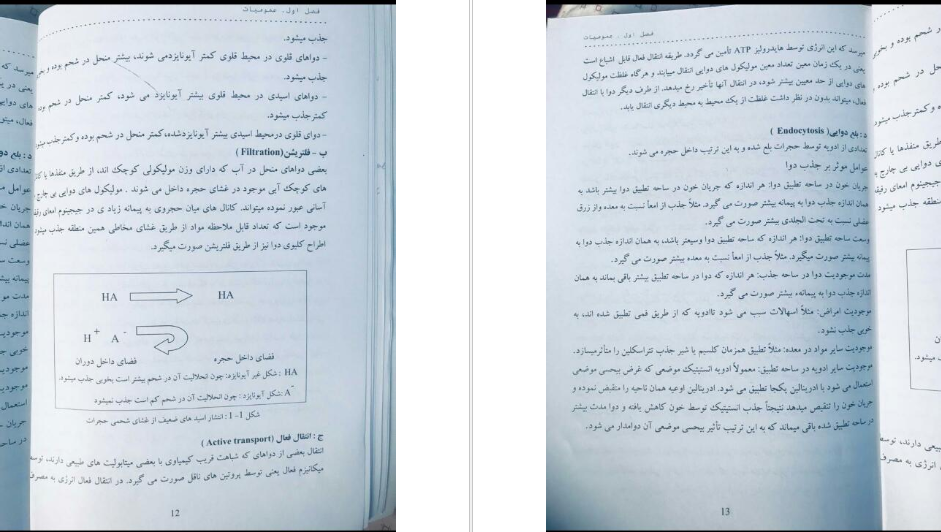 فصل اول. عمومیات
جذب میشود.
- دواهای قلوی در محیط قلوی کمتر آیونایزدمی شوند، بیشتر منحل در شحم بوده و بخوبی
جذب میشود.
- دواهای اسیدی در محیط قلوی بیشتر آیونایزد می شود، کمتر منحل در شحم بوده
کمترجذب میشود.
- دوای قلوی درمحیط اسیدی بیشتر آیونایزدشده،کمتر منحل در شحم بوده وکمترجذب میشود
ب – فلتریشن(Filtration )
بعضی دواهای منحل در آب که دارای وزن مولیکولی کوچک اند، از طریق منفذها یا کانال
های کوچک آبی موجود در غشای حجره داخل می شوند . مولیکول های دوایی بی چارج به
آسانی عبور نموده میتواند. کانال های میان حجروی به پیمانه زیاد ی در جیجینوم امعای رقیقه
موجود است که تعداد قابل ملاحظه مواد از طریق غشای مخاطی همین منطقه جذب میشود
اطراح کلیوی دوا نیز از طریق فلتریشن صورت میگیرد.
HA
HA
H+ A-
فضای داخل حجره
فضای داخل دوران
HA : شکل غیر آیونایزد: چون انحلالیت آن در شحم بیشتر است بخوبی جذب میشود.
A- :شکل آیونایزد : چون انحلالیت آن در شحم کم است جذب نمیشود
شکل 1-1 : انتشار اسید های ضعیف از غشای شحمی حجرات
ج : انتقال فعال (Active transport )
انتقال بعضی از دواهای که شباهت قریب کیمیاوی با بعضی میتابولیت های طبیعی دارند، توسط
میکانیزم فعال یعنی توسط پروتین های ناقل صورت می گیرد. در انتقال فعال انرژی به مصرف
12
فصل اول. عمومیات
میرسد که این انرژی توسط هایدرولیز ATP تأمین می گردد. طریقه انتقال فعال قابل اشباع است
یعنی در یک زمان معین تعداد معین مولیکول های دوایی انتقال میبابند و هرگاه غلظت مولیکول
های دوایی از حد معیین بیشتر شود، در انتقال آنها تأخیر رخ میدهد. از طرف دیگر دوا با انتقال
فعال، میتواند بدون در نظر داشت غلظت از یک محیط به محیط دیگری انتقال یابد.
د : بلع دوایی( Endocytosis )
تعدادی از ادویه توسط حجرات بلع شده و به این ترتیب داخل حجره می شوند.
عوامل موثر بر جذب دوا
جریان خون در ساحه تطبیق دوا: هر اندازه که جریان خون در ساحه تطبیق دوا بیشتر باشد به
همان اندازه جذب دوا به پیمانه بیشتر صورت می گیرد. مثلاً جذب از امعأ نسبت به معده واز زرق
عضلی نسبت به تحت الجلدی بیشتر صورت می گیرد.
وسعت ساحه تطبیق دوا: هر اندازه که ساحه تطبیق دوا وسیعتر باشد، به همان اندازه جذب دوا به
پیمانه بیشتر صورت میگیرد. مثلاً جذب از امعأ نسبت به معده بیشتر صورت می گیرد.
مدت موجودیت دوا در ساحه جذب: هر اندازه که دوا در ساحه تطبیق بیشتر باقی بماند به همان
اندازه جذب دوا به پیمانهء بیشتر صورت می گیرد.
موجودیت امراض: مثلاً اسهالات سبب می شود تاادویه که از طریق فمی تطبیق شده اند، به
خوبی جذب نشود.
موجودیت سایر مواد در معده: مثلاً تطبیق همزمان کلسیم یا شیر جذب تتراسکلین را متأثرمیسازد.
موجودیت سایر ادویه در ساحه تطبیق: معمولاً ادویه انستیتیک موضعی که غرض بیحسی موضعی
استعمال می شود با ادرینالین یکجا تطبیق می شود. ادرینالین اوعیه همان ناحیه را متقبض نموده و
جریان خون را تنقیص میدهد نتیجتاً جذب انستیتیک توسط خون کاهش یافته و دوا مدت بیشتر
در ساحه تطبیق شده باقی میماند که به این ترتیب تأثیر بیحسی موضعی آن دوامدار می شود.
13